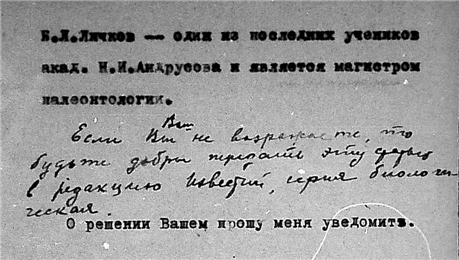 Б.Л.Личков — один из последних учеников
акад. Н.И.Андрусова и является магистром
палеонтологии.
Вы
Если не возражаете, то
будьте добры передать эту
в редакцию Известий, серия биологи-
ческая.
О решении Вашем прошу меня уведомить.